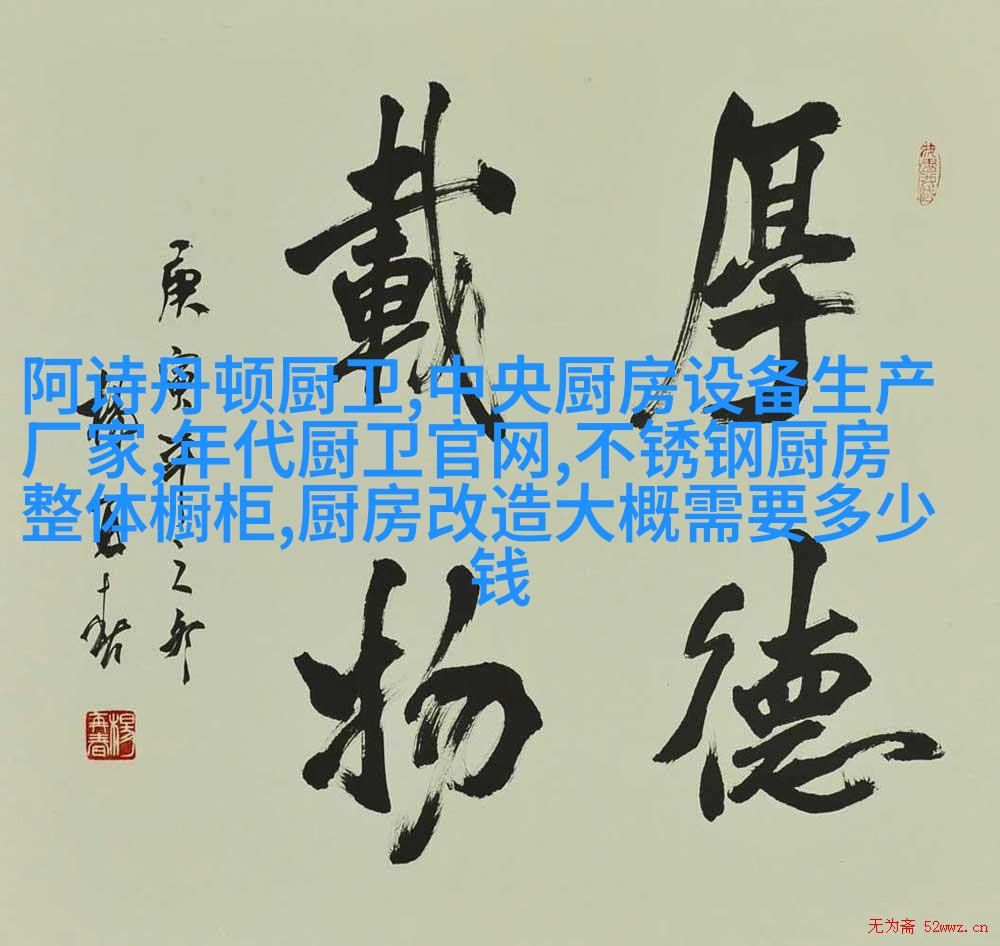 厚德
載物
庚寅年
楊再春
阿诗丹顿厨卫,中央厨房设备生产
厂家,年代厨卫官网,不锈钢厨房
整体橱柜,厨房改造大概需要多少
钱
无为斋 52wwz.cn